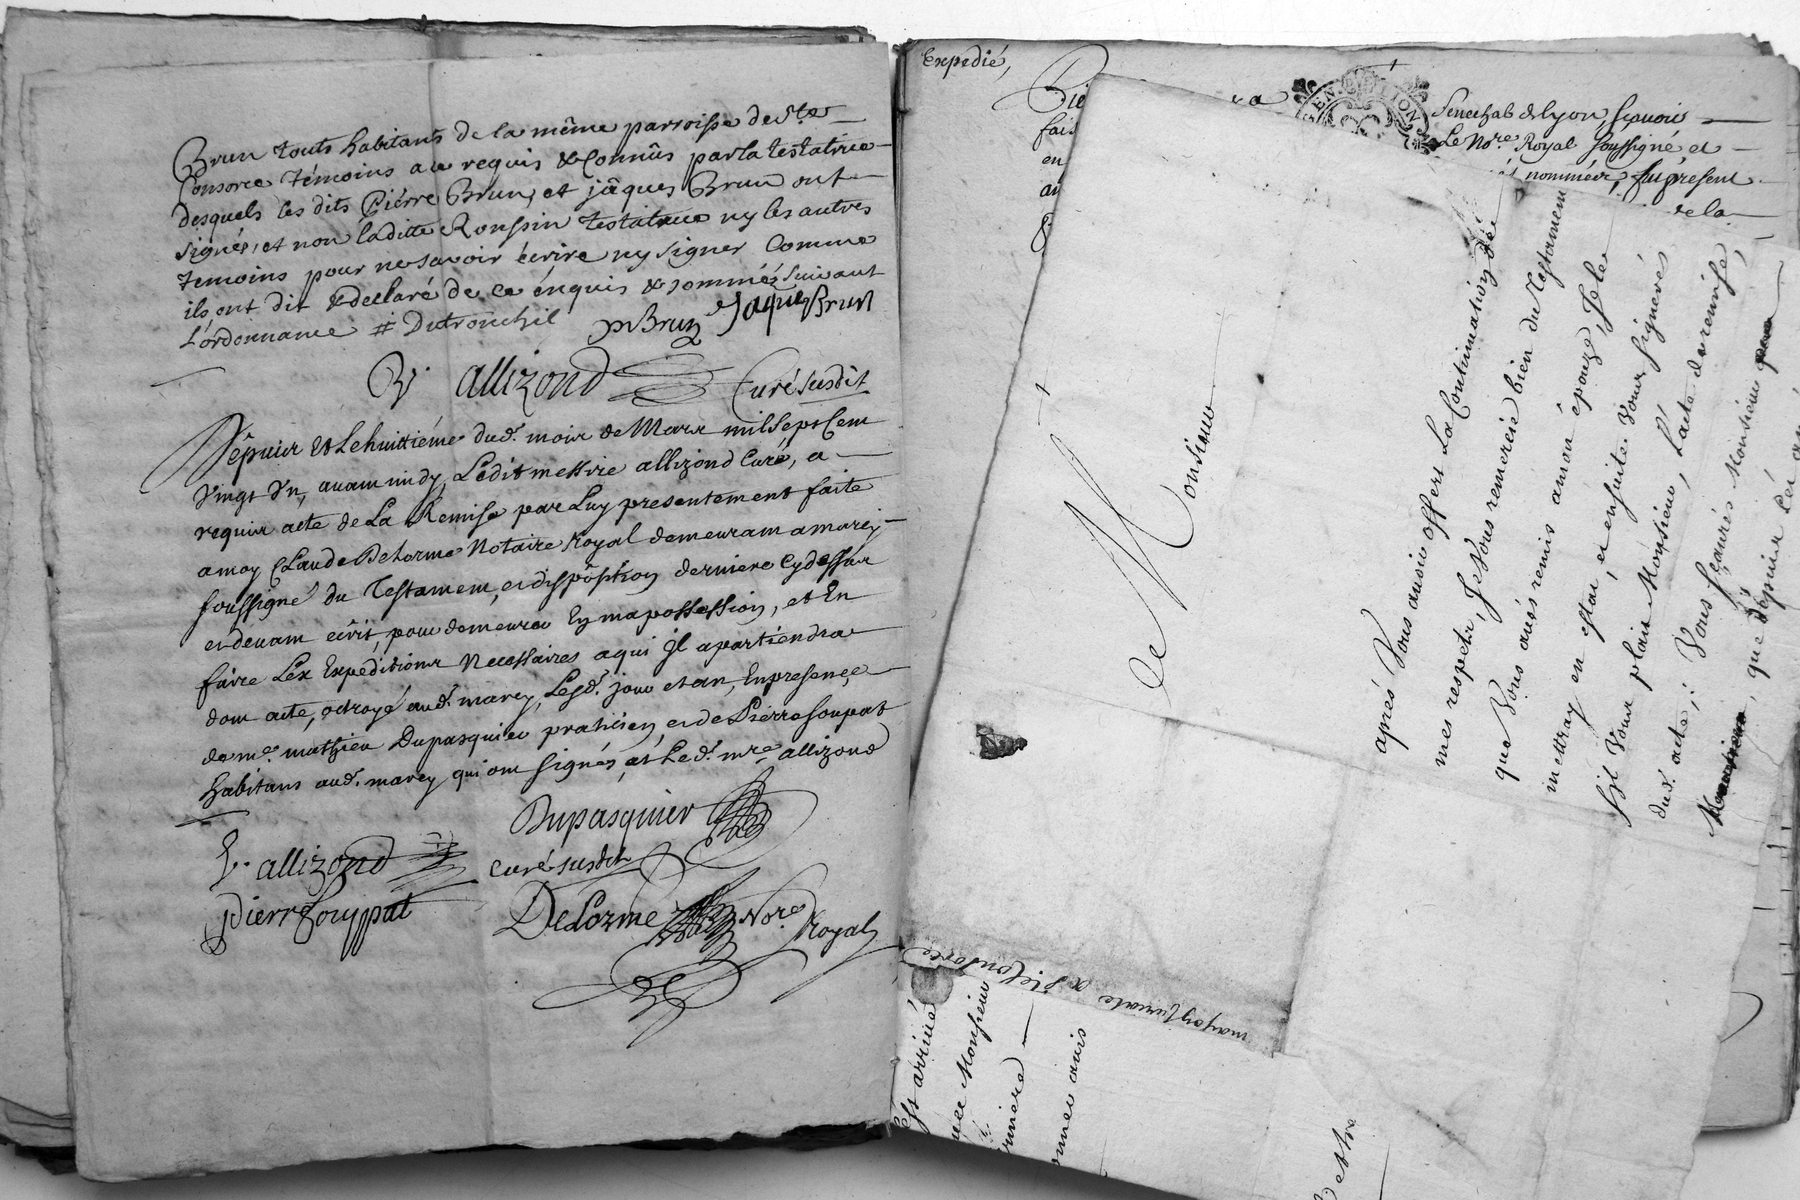 Brun touts habitants de la même parroisse de Ste
Consorce témoins a ce requis & Connûs par la testatrice
desquels les dits Piérre Brun, et jâques Brun ont
signés, et non laditte Ronssin testatrice ny les autres
temoins pour ne savoir écrire ny signer Comme
ils ont dit & declaré de ce énquis & sommés suivant
L'ordonnance # Dutronchil
pBrun Jaques Brun
allizond Curé susdit
Dépuis Et Le huittiéme dud. mois de Mars mil Sept Cent
Vingt Un, avant midy, Ledit messire allizond Curé, a
requis acte de La Remise par Luy presentement faite
a moy Claude Delorme Notaire royal demeurant a marcy
soussigné du Testament, et dispôsition derniere Cy dessus
et devant écrit, pour demeurer En ma possession, et En
faire Les Expeditions Necessaires a qui Jl apartiendra
dont acte, octroyé aud. marcy, Lesd. jour et an, En presence
de me. mathieu Dupasquier praticien, et de Piérre soupat
habitans aud. marcy qui ont signés, et Le d. mre. allizond
Dupasquier
allizond curé susdit
pierre souppat
DeLorme Nore. Royal
Expedié,
fais
en
Senechal de lyon, scavoir
Le Nore. Royal soussigné, et
nommés, fut present
de la
De Monsieur
aprés Vous avoir offert La Continuation de
mes respets, Je Vous remercie bien du Testament
que Vous avés remis a mon épouze, Je le
mettray en estat, et ensuite Vous signerés
s'il Vous plait Monsieur, L'acte de remise
dud. acte; Vous scaurés Monsieur
, que dépuis cet
maison Curiale a Ste Consorce
Est arrivé
avec Monsieur
derniere
donner avis